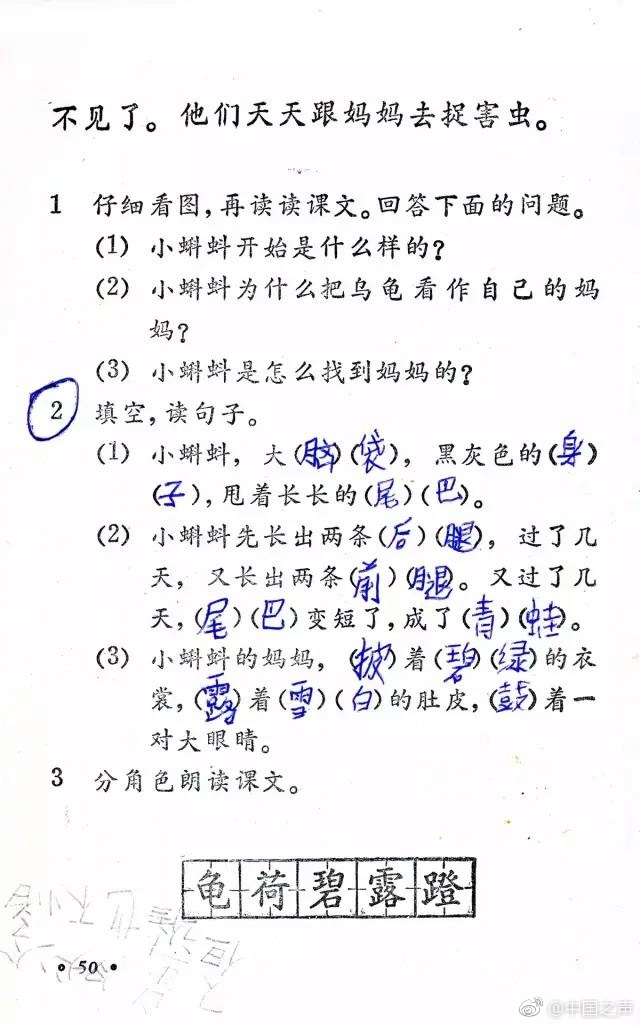 不见了。他们天天跟妈妈去捉害虫。
1 仔细看图,再读读课文。回答下面的问题。
(1) 小蝌蚪开始是什么样的?
(2) 小蝌蚪为什么把乌龟看作自己的妈
妈?
(3) 小蝌蚪是怎么找到妈妈的?
2 填空,读句子。
(1) 小蝌蚪,大(脑)(袋),黑灰色的(身)
(子),甩着长长的(尾)(巴)。
(2) 小蝌蚪先长出两条(后)(腿),过了几
天,又长出两条(前)(腿)。又过了几
天,(尾)(巴)变短了,成了(青)(蛙)。
(3) 小蝌蚪的妈妈,(披)着(碧)(绿)的衣
裳,(露)着(雪)(白)的肚皮,(鼓)着一
对大眼睛。
3 分角色朗读课文。
龟荷碧露蹬
·50·
@中国之声